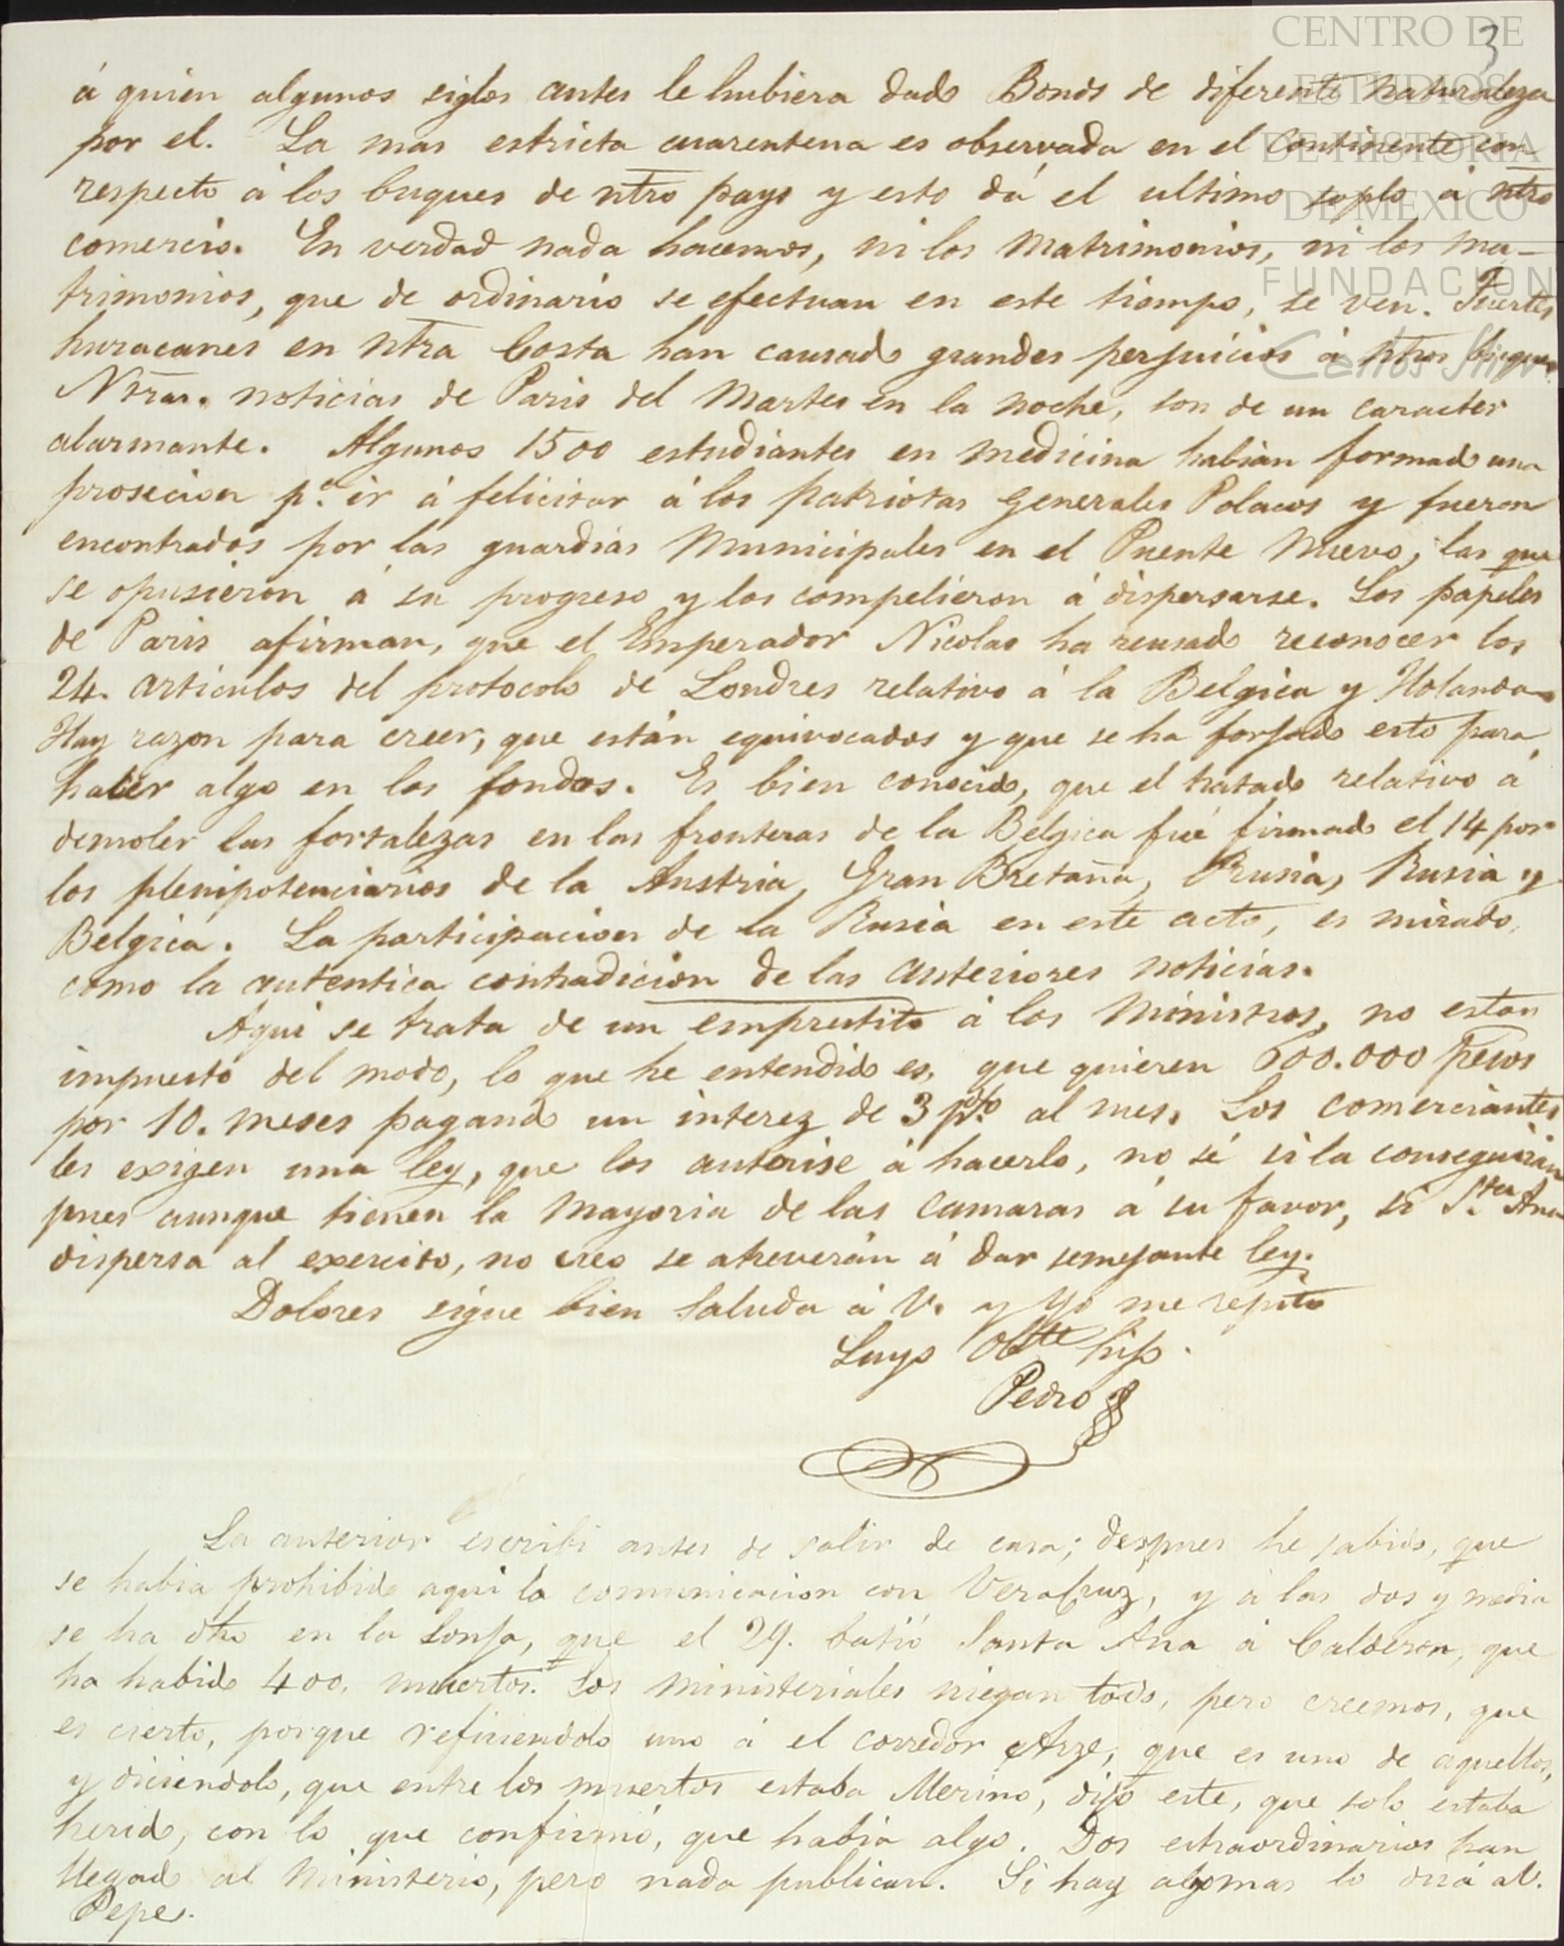 3
CENTRO DE
ESTUDIOS
DE HISTORIA
DE MEXICO
FUNDACION
Carlos Slim
á quien algunos siglos antes le hubiera dado Bonos de diferente naturaleza
por el. La mas estricta cuarentena es observada en el continente con
respecto á los buques de ntro pays y esto dá el ultimo soplo á ntro
comercio. En verdad nada hacemos, ni los Matrimonios, ni los ma-
trimonios, que de ordinario se efectuan en este tiempo, se ven. Fuertes
huracanes en ntra Costa han causado grandes perjuicios á ntros buques.
Ntras. noticias de Paris del Martes en la noche, son de un caracter
alarmante. Algunos 1500 estudiantes en medicina habian formado una
prosecion pa. ir á felicitar á los patriotas Generales Polacos y fueron
encontrados por las guardias Municipales en el Puente Nuevo, las que
se opusieron á su progreso y los compelieron á dispersarse. Los papeles
de Paris afirman, que el Emperador Nicolas ha reusado reconocer los
24. articulos del protocolo de Londres relativo á la Belgica y Holanda.
Hay razon para creer, que están equivocados y que se ha forjado esto para
hacer algo en los fondos. Es bien conocido, que el tratado relativo á
demoler las fortalezas en las fronteras de la Belgica fué firmado el 14 por
los plenipotenciarios de la Austria, Gran Bretaña, Prusia, Rusia y
Belgica. La participacion de la Rusia en este acto, es mirado,
como la autentica contradicion de las anteriores noticias.
Aqui se trata de un emprestito á los Ministros, no estoy
impuesto del modo, lo que he entendido es, que quieren 600.000 pesos
por 10. meses pagando un interez de 3 p% al mes. Los comerciantes
les exigen una ley, que los autorise á hacerlo, no sé si la conseguirán
pues aunque tienen la Mayoria de las Camaras á su favor, si Sta. Ana
dispersa al exercito, no creo se atreverán á dar semejante ley.
Dolores sigue bien saluda á V. y yo me repito
Suyo Obte hijo.
Pedro
La anterior escribi antes de salir de casa; despues he sabido, que
se habia prohibido aqui la comunicacion con VeraCruz, y á las dos y media
se ha dho en la Lonja, que el 29. batió Santa Ana á Calderon, que
ha habido 400. muertos. Los ministeriales niegan todo, pero creemos, que
es cierto, porque refiriendolo uno á el corredor Arze, que es uno de aquellos,
y diciendole, que entre los muertos estaba Merino, dijo este, que solo estaba
herido, con lo que confirmó, que habia algo. Dos estraordinarios han
llegado al Ministerio, pero nada publican. Si hay algo mas lo dirá á V.
Pepe.